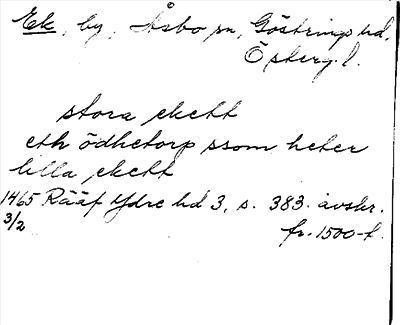 Ek, by, Åsbo sn, Göstrings hd,
Östergl.
stora ekett
eth ödhetorp ssom heter
lilla ekett
1465 Rääf Ydre hd 3, s. 383. avskr.
3/2 fr. 1500-t.